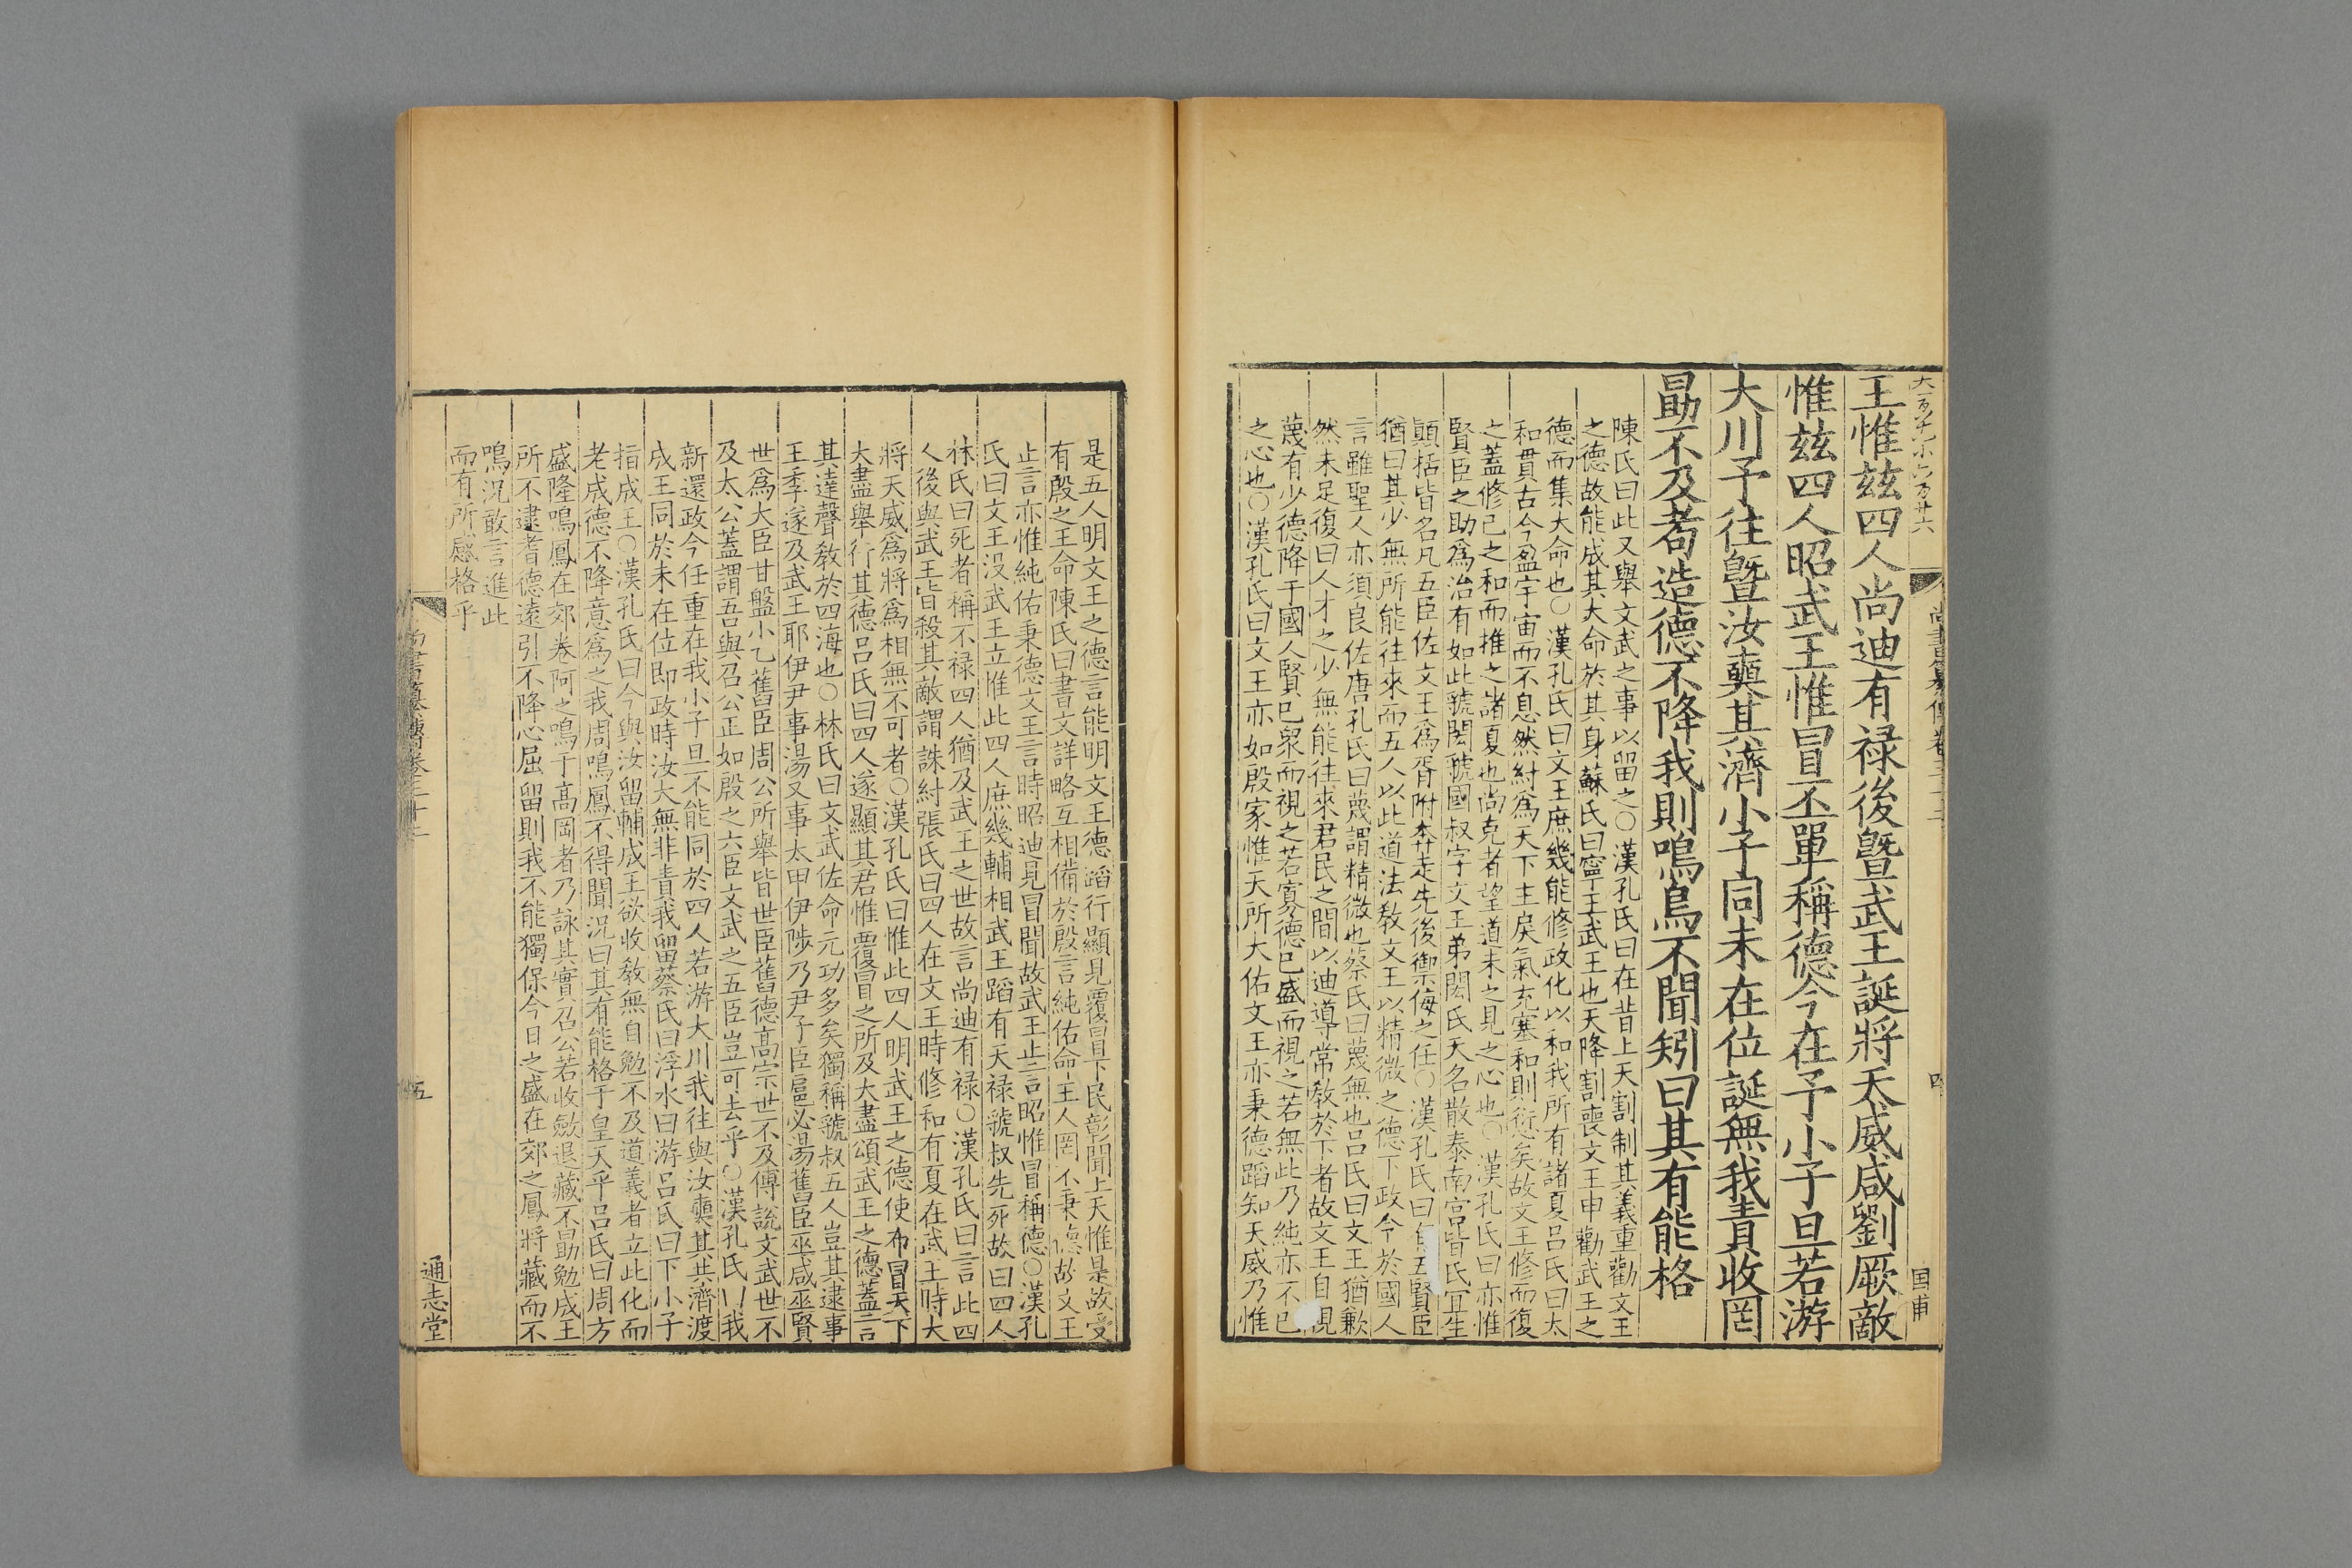 大一百九十九小六百廿六
尚書纂傳卷三十二
四
国甫
王惟茲四人尚迪有祿後曁武王誕將天威咸劉厥敵
惟茲四人昭武王惟冒丕單稱德今在予小子旦若游
大川予往曁汝奭其濟小子同未在位誕無我責收罔
勗不及耇造德不降我則鳴鳥不聞矧曰其有能格
陳氏曰此又舉文武之事以留之○漢孔氏曰在昔上天割制其義重勸文王
之德故能成其大命於其身蘇氏曰寧王武王也天降割喪文王申勸武王之
德而集大命也○漢孔氏曰文王庶幾能修政化以和我所有諸夏呂氏曰太
和貫古今盈宇宙而不息然紂爲天下主戾氣充塞和則衍愆矣故文王修而復
之蓋修己之和而推之諸夏也尚克者望道未之見之心也○漢孔氏曰亦惟
賢臣之助爲治有如此虢閎虢國叔字文王弟閎氏夭名散泰南宮皆氏宜生
顛括皆名凡五臣佐文王爲胥附奔走先後禦侮之任○漢孔氏曰有五賢臣
猶曰其少無所能往來而五人以此道法敎文王以精微之德下政令於國人
言雖聖人亦須良佐唐孔氏曰蔑謂精微也蔡氏曰蔑無也呂氏曰文王猶歉
然未足復曰人才之少無能往來君民之間以迪導常敎於下者故文王自視
蔑有少德降于國人賢已衆而視之若寡德已盛而視之若無此乃純亦不已
之心也○漢孔氏曰文王亦如殷家惟天所大佑文王亦秉德蹈知天威乃惟
是五人明文王之德言能明文王德蹈行顯見覆冒下民彰聞上天惟是故受
有殷之王命陳氏曰書文詳略互相備於殷言純佑命王人罔不秉德故文王
止言亦惟純佑秉德文王言時昭迪見冒聞故武王止言昭惟冒稱德○漢孔
氏曰文王没武王立惟此四人庶幾輔相武王蹈有天祿虢叔先死故曰四人
林氏曰死者稱不禄四人猶及武王之世故言尚迪有祿○漢孔氏曰言此四
人後與武王皆殺其敵謂誅紂張氏曰四人在文王時修和有夏在武王時大
將天威爲將爲相無不可者○漢孔氏曰惟此四人明武王之德使布冒天下
大盡舉行其德呂氏曰四人遂顯其君惟覆冒之所及大盡頌武王之德蓋言
其達聲敎於四海也○林氏曰文武佐命元功多矣獨稱虢叔五人豈其逮事
王季遂及武王耶伊尹事湯又事太甲伊陟乃尹子臣扈必湯舊臣巫咸巫賢
世爲大臣甘盤小乙舊臣周公所舉皆世臣舊德高宗世不及傅說文武世不
及太公蓋謂吾與召公正如殷之六臣文武之五臣豈可去乎○漢孔氏曰我
新還政今任重在我小子旦不能同於四人若游大川我往與汝奭其共濟渡
成王同於未在位即政時汝大無非責我留蔡氏曰浮水曰游呂氏曰下小子
指成王○漢孔氏曰今與汝留輔成王欲收敎無自勉不及道義者立此化而
老成德不降意爲之我周鳴鳳不得聞況曰其有能格于皇天乎呂氏曰周方
盛隆鳴鳳在郊卷阿之鳴于高岡者乃詠其實召公若收斂退藏不勗勉成王
所不逮耆德遠引不降心屈留則我不能獨保今日之盛在郊之鳳將藏而不
鳴況敢言進此
而有所感格乎
尚書纂傳卷三十二
五
通志堂